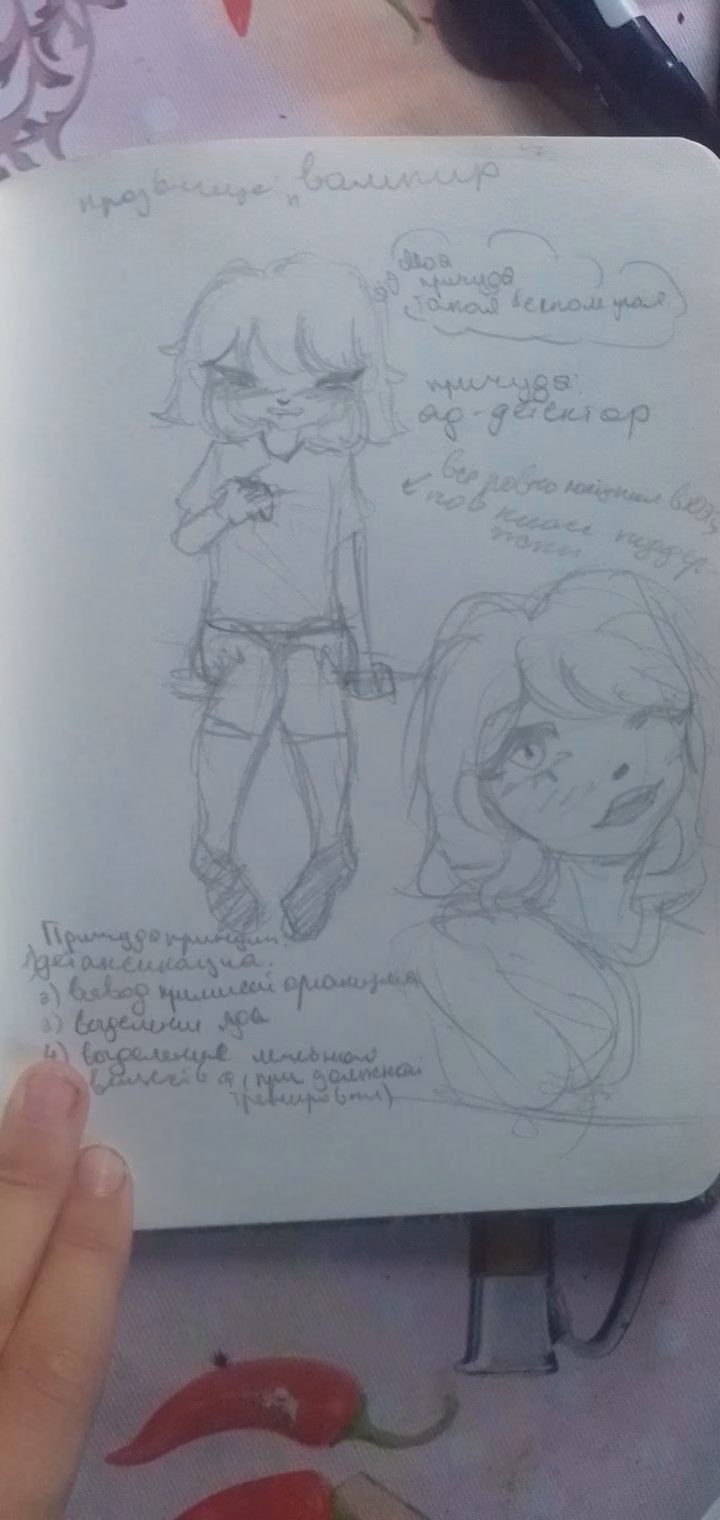 прозвище: "вампир
Моя
причуда
такая бесполезная
причуда:
яд-детектор
все ровно
пов класс поддер-
жки
Причуда принцип:
1) детоксикация.
2) вывод примисей организма
3) выделение яда
4) выделение лечебного
вещества (при должной
тренировки)